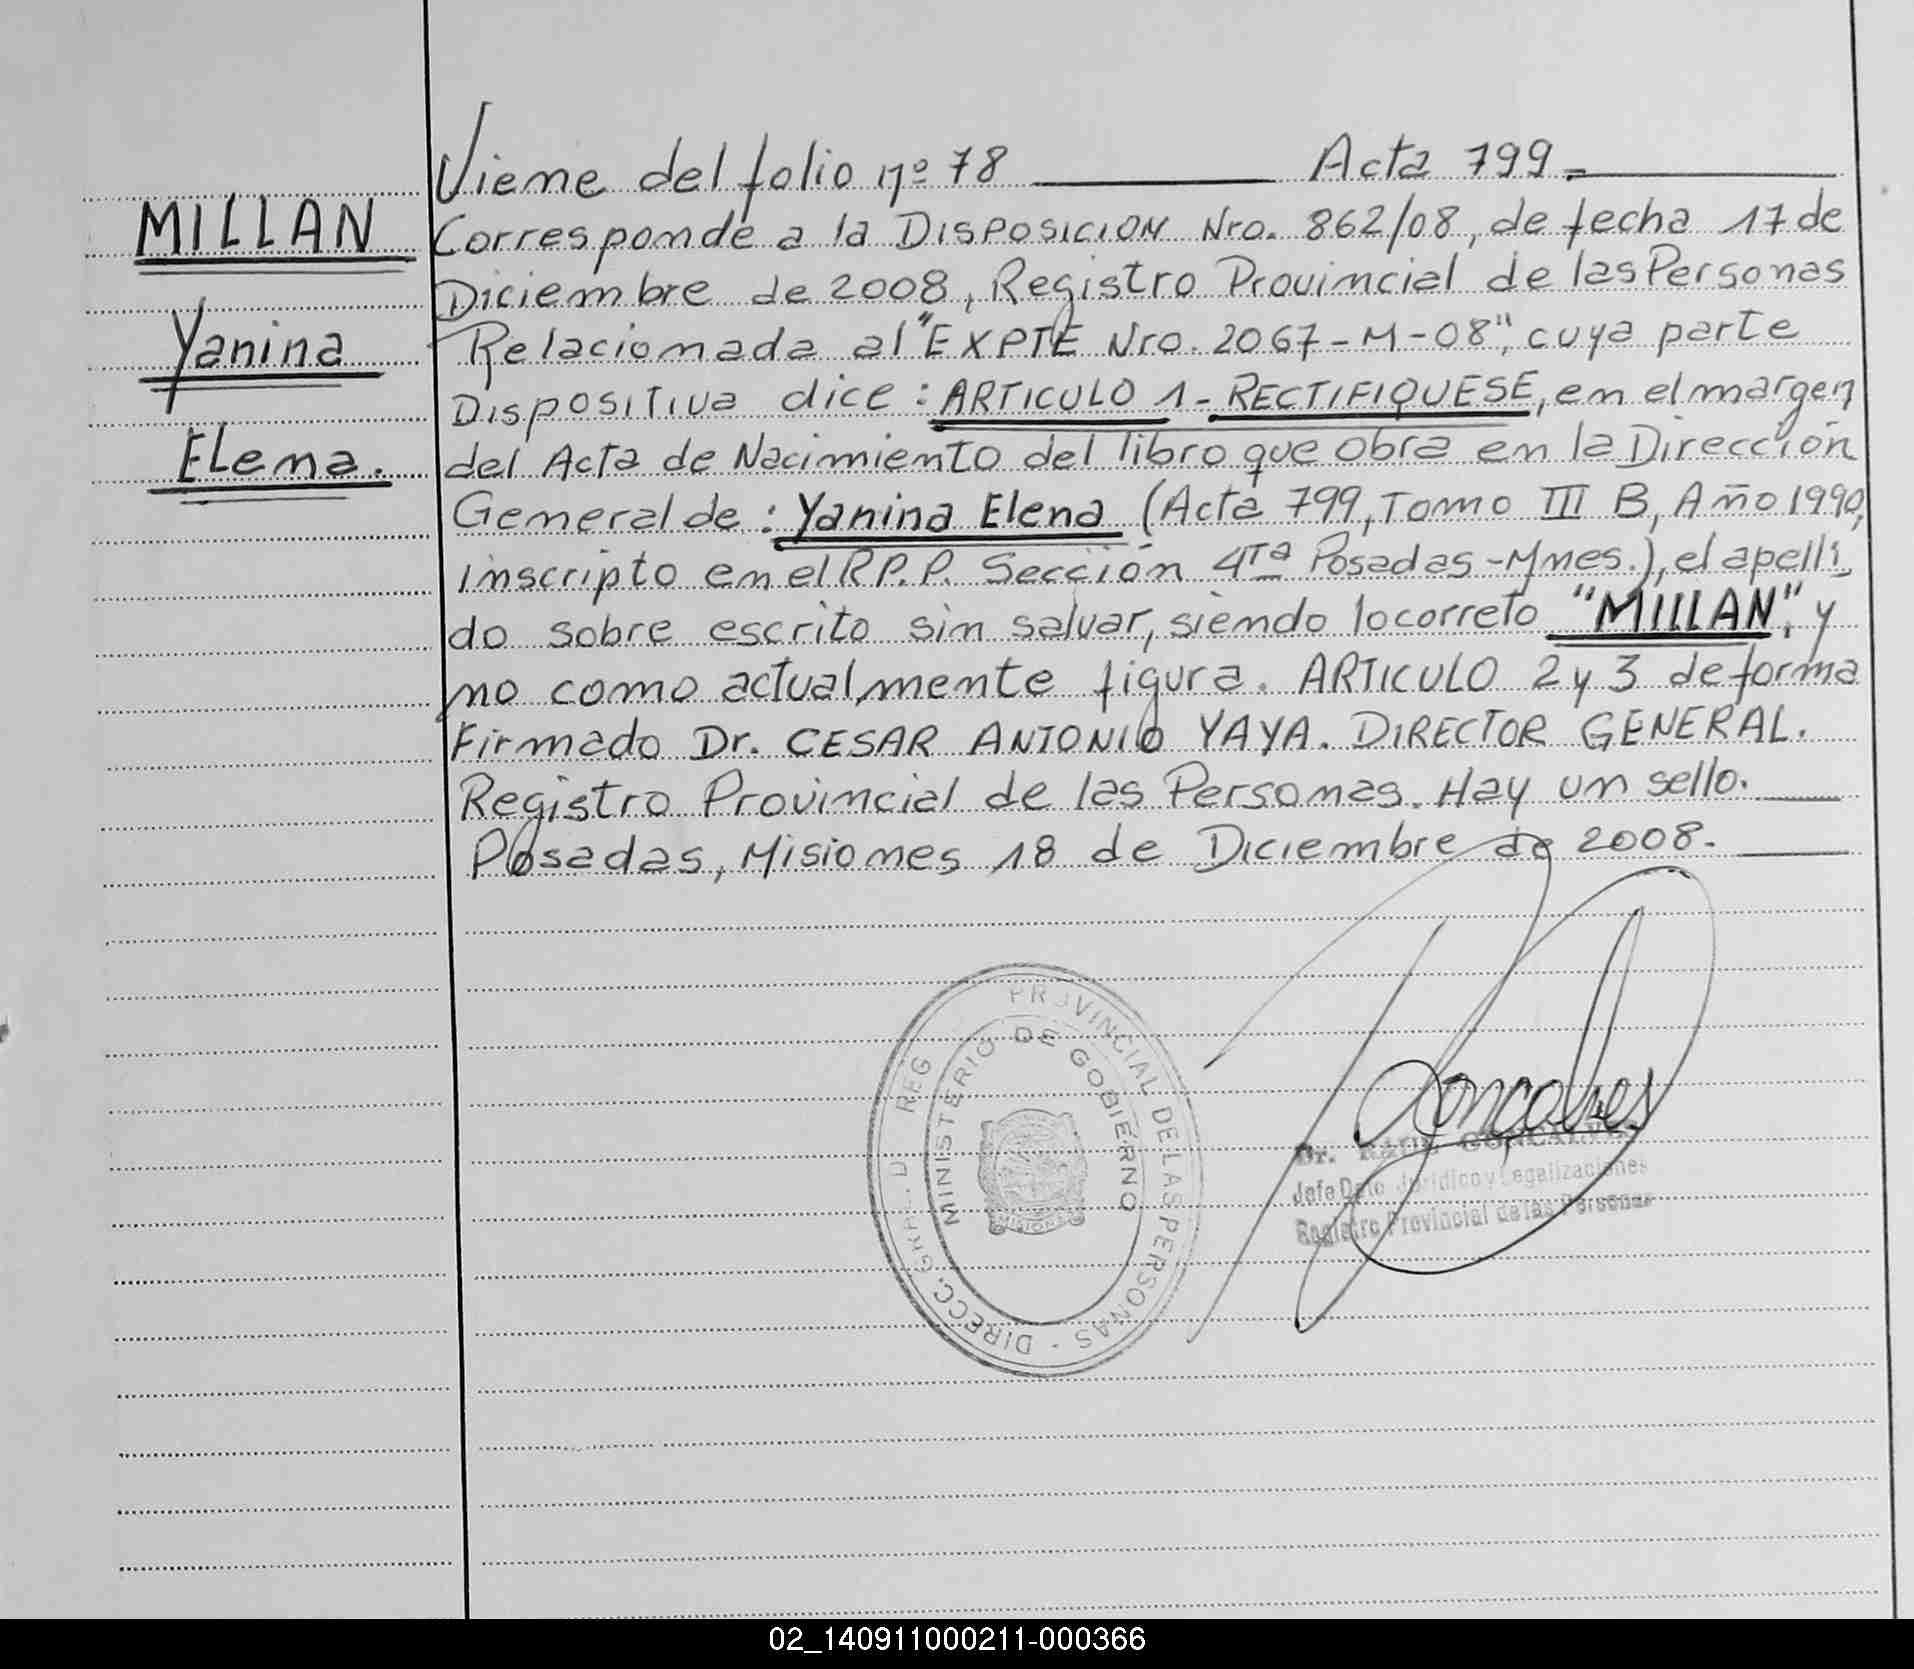 Viene del folio nº 78 Acta 799.
MILLAN
Corresponde a la DISPOSICION Nro. 862/08, de fecha 17 de
Diciembre de 2008, Registro Provincial de las Personas
Yanina
Relacionada al "EXPTE Nro. 2067-M-08", cuya parte
Dispositiva dice: ARTICULO 1- RECTIFIQUESE, en el margen
Elena.
del Acta de Nacimiento del libro que obra en la Dirección
General de: Yanina Elena (Acta 799, Tomo III B, Año 1990,
inscripto en el R.P.P. Sección 4Ta Posadas-Mnes.), el apelli
do sobre escrito sin salvar, siendo lo correto "MILLAN", y
no como actual,mente figura. ARTICULO 2 y 3 de forma
Firmado Dr. CESAR ANTONIO YAYA. DIRECTOR GENERAL.
Registro Provincial de las Personas. Hay un sello.
Posadas, Misiones 18 de Diciembre de 2008.
PROVINCIAL DE LAS PERSONAS - DIRECC. GRAL. D REG
MINISTERIO DE GOBIERNO
MISIONES
Goncalves
Dr. RAUL GONCALVES
Jefe Dpto Juridico y Legalizaciones
Registro Provincial de las Personas
02_140911000211-000366